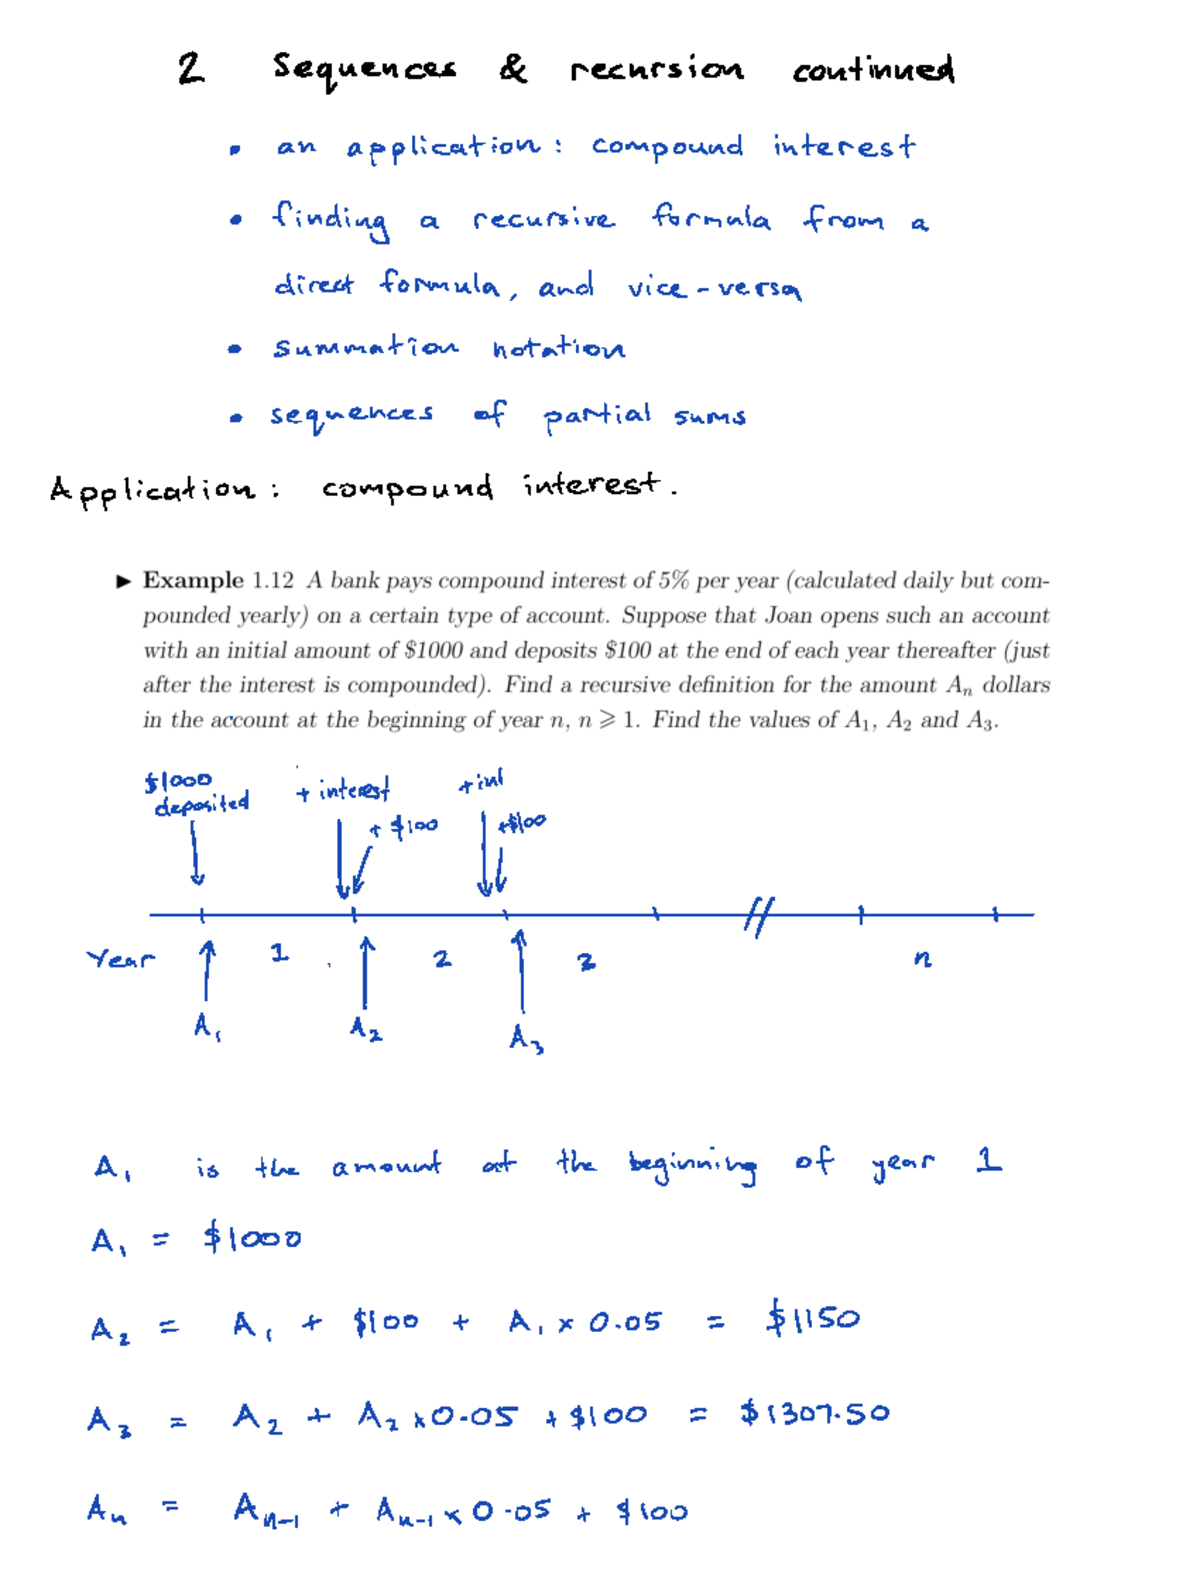 2 Sequences & recursion continued
• an application: compound interest
• finding a recursive formula from a
direct formula, and vice-versa
• summation notation
• sequences of partial sums
Application: compound interest.
► Example 1.12 A bank pays compound interest of 5% per year (calculated daily but com-
pounded yearly) on a certain type of account. Suppose that Joan opens such an account
with an initial amount of $1000 and deposits $100 at the end of each year thereafter (just
after the interest is compounded). Find a recursive definition for the amount Aₙ dollars
in the account at the beginning of year n, n ⩾ 1. Find the values of A₁, A₂ and A₃.
$1000 + interest + int
deposited + $100 +$100
Year 1 2 2 n
A₁ A₂ A₃
A₁ is the amount at the beginning of year 1
A₁ = $1000
A₂ = A₁ + $100 + A₁ × 0.05 = $1150
A₃ = A₂ + A₂ × 0.05 + $100 = $1307.50
Aₙ = Aₙ₋₁ + Aₙ₋₁ × 0.05 + $100